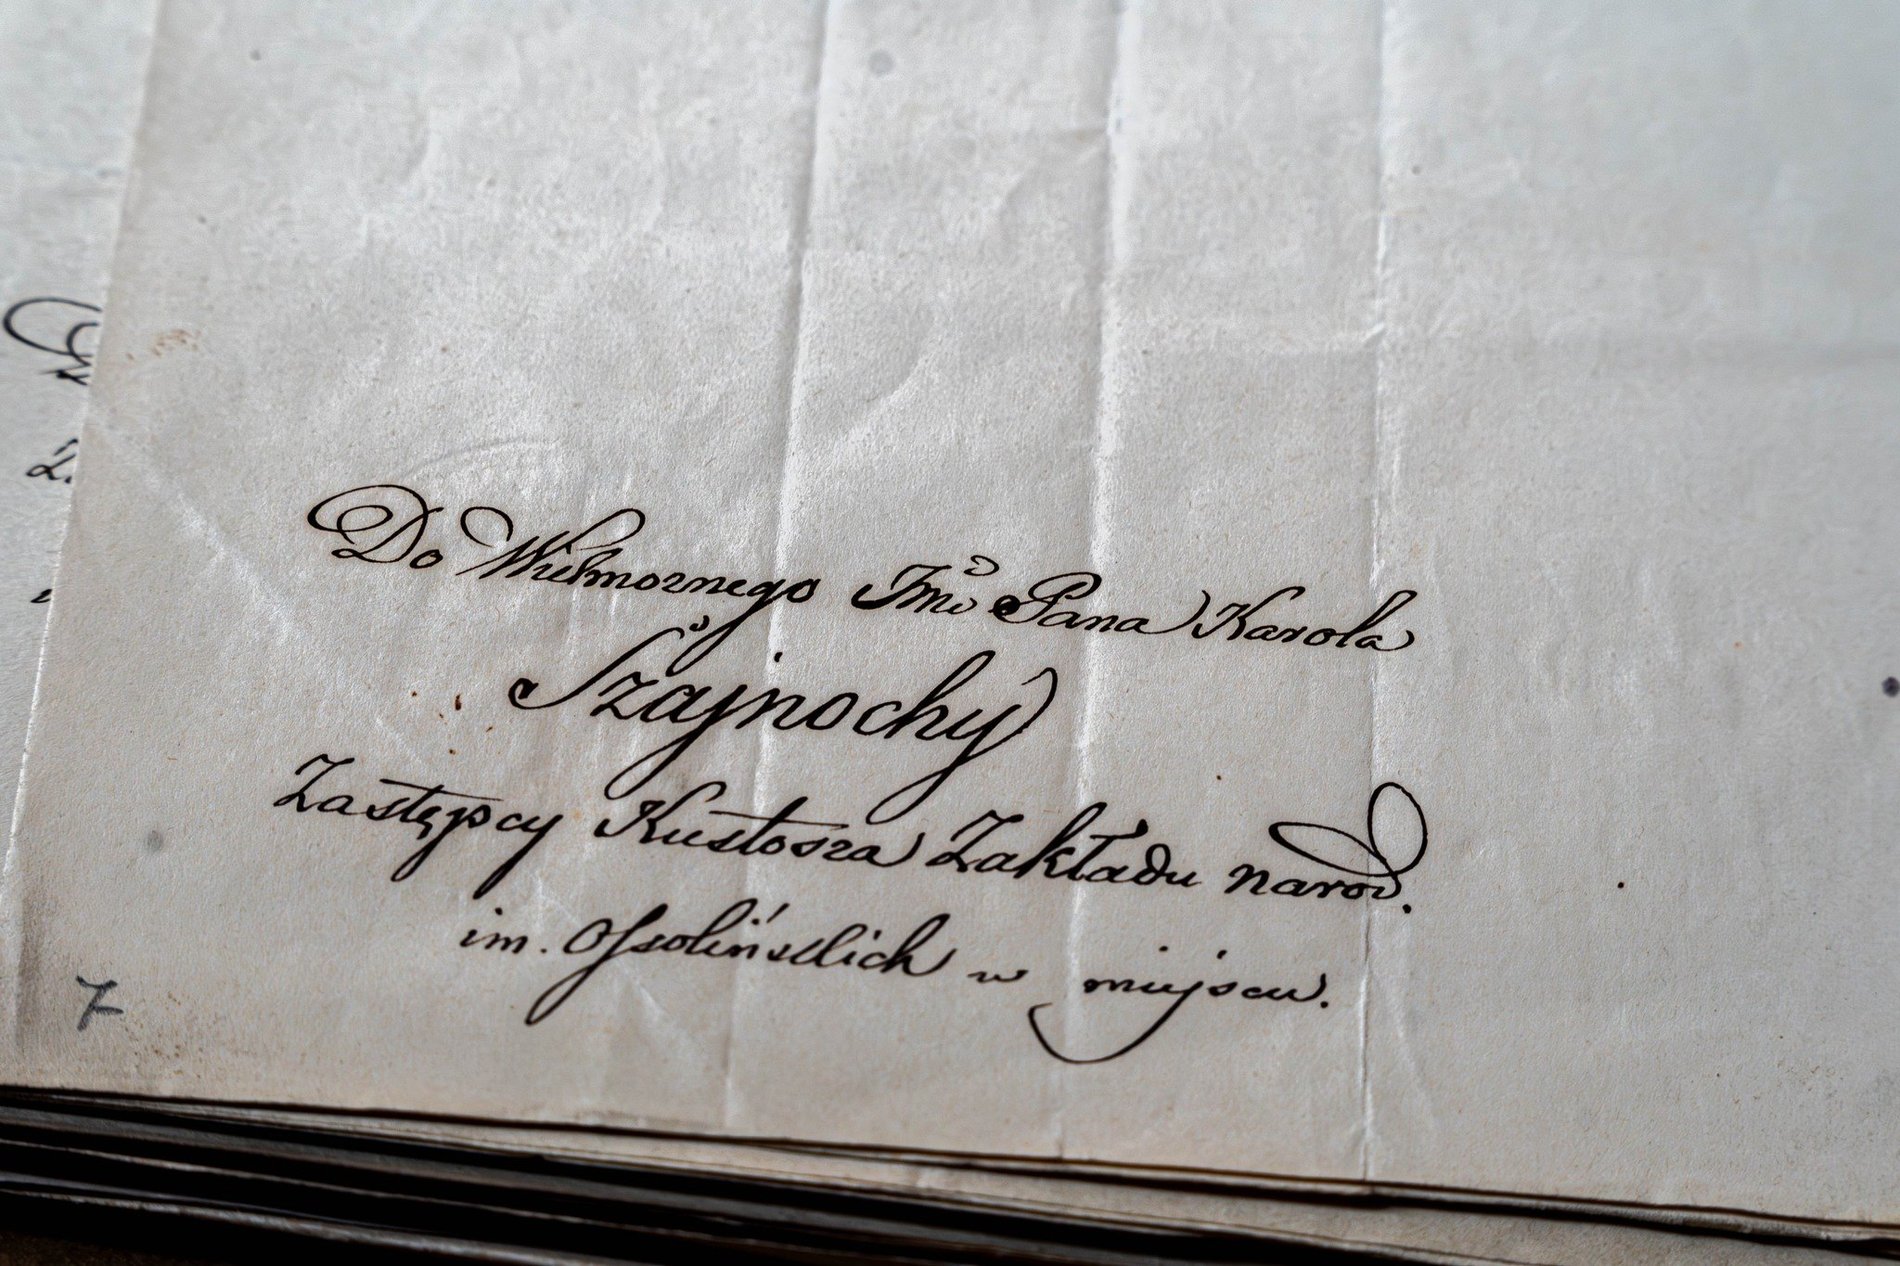 Do Wielmożnego Jmć Pana Karola
Szajnochy
Zastępcy Kustosza Zakładu narod.
im. Ossolińskich w miejscu.
7